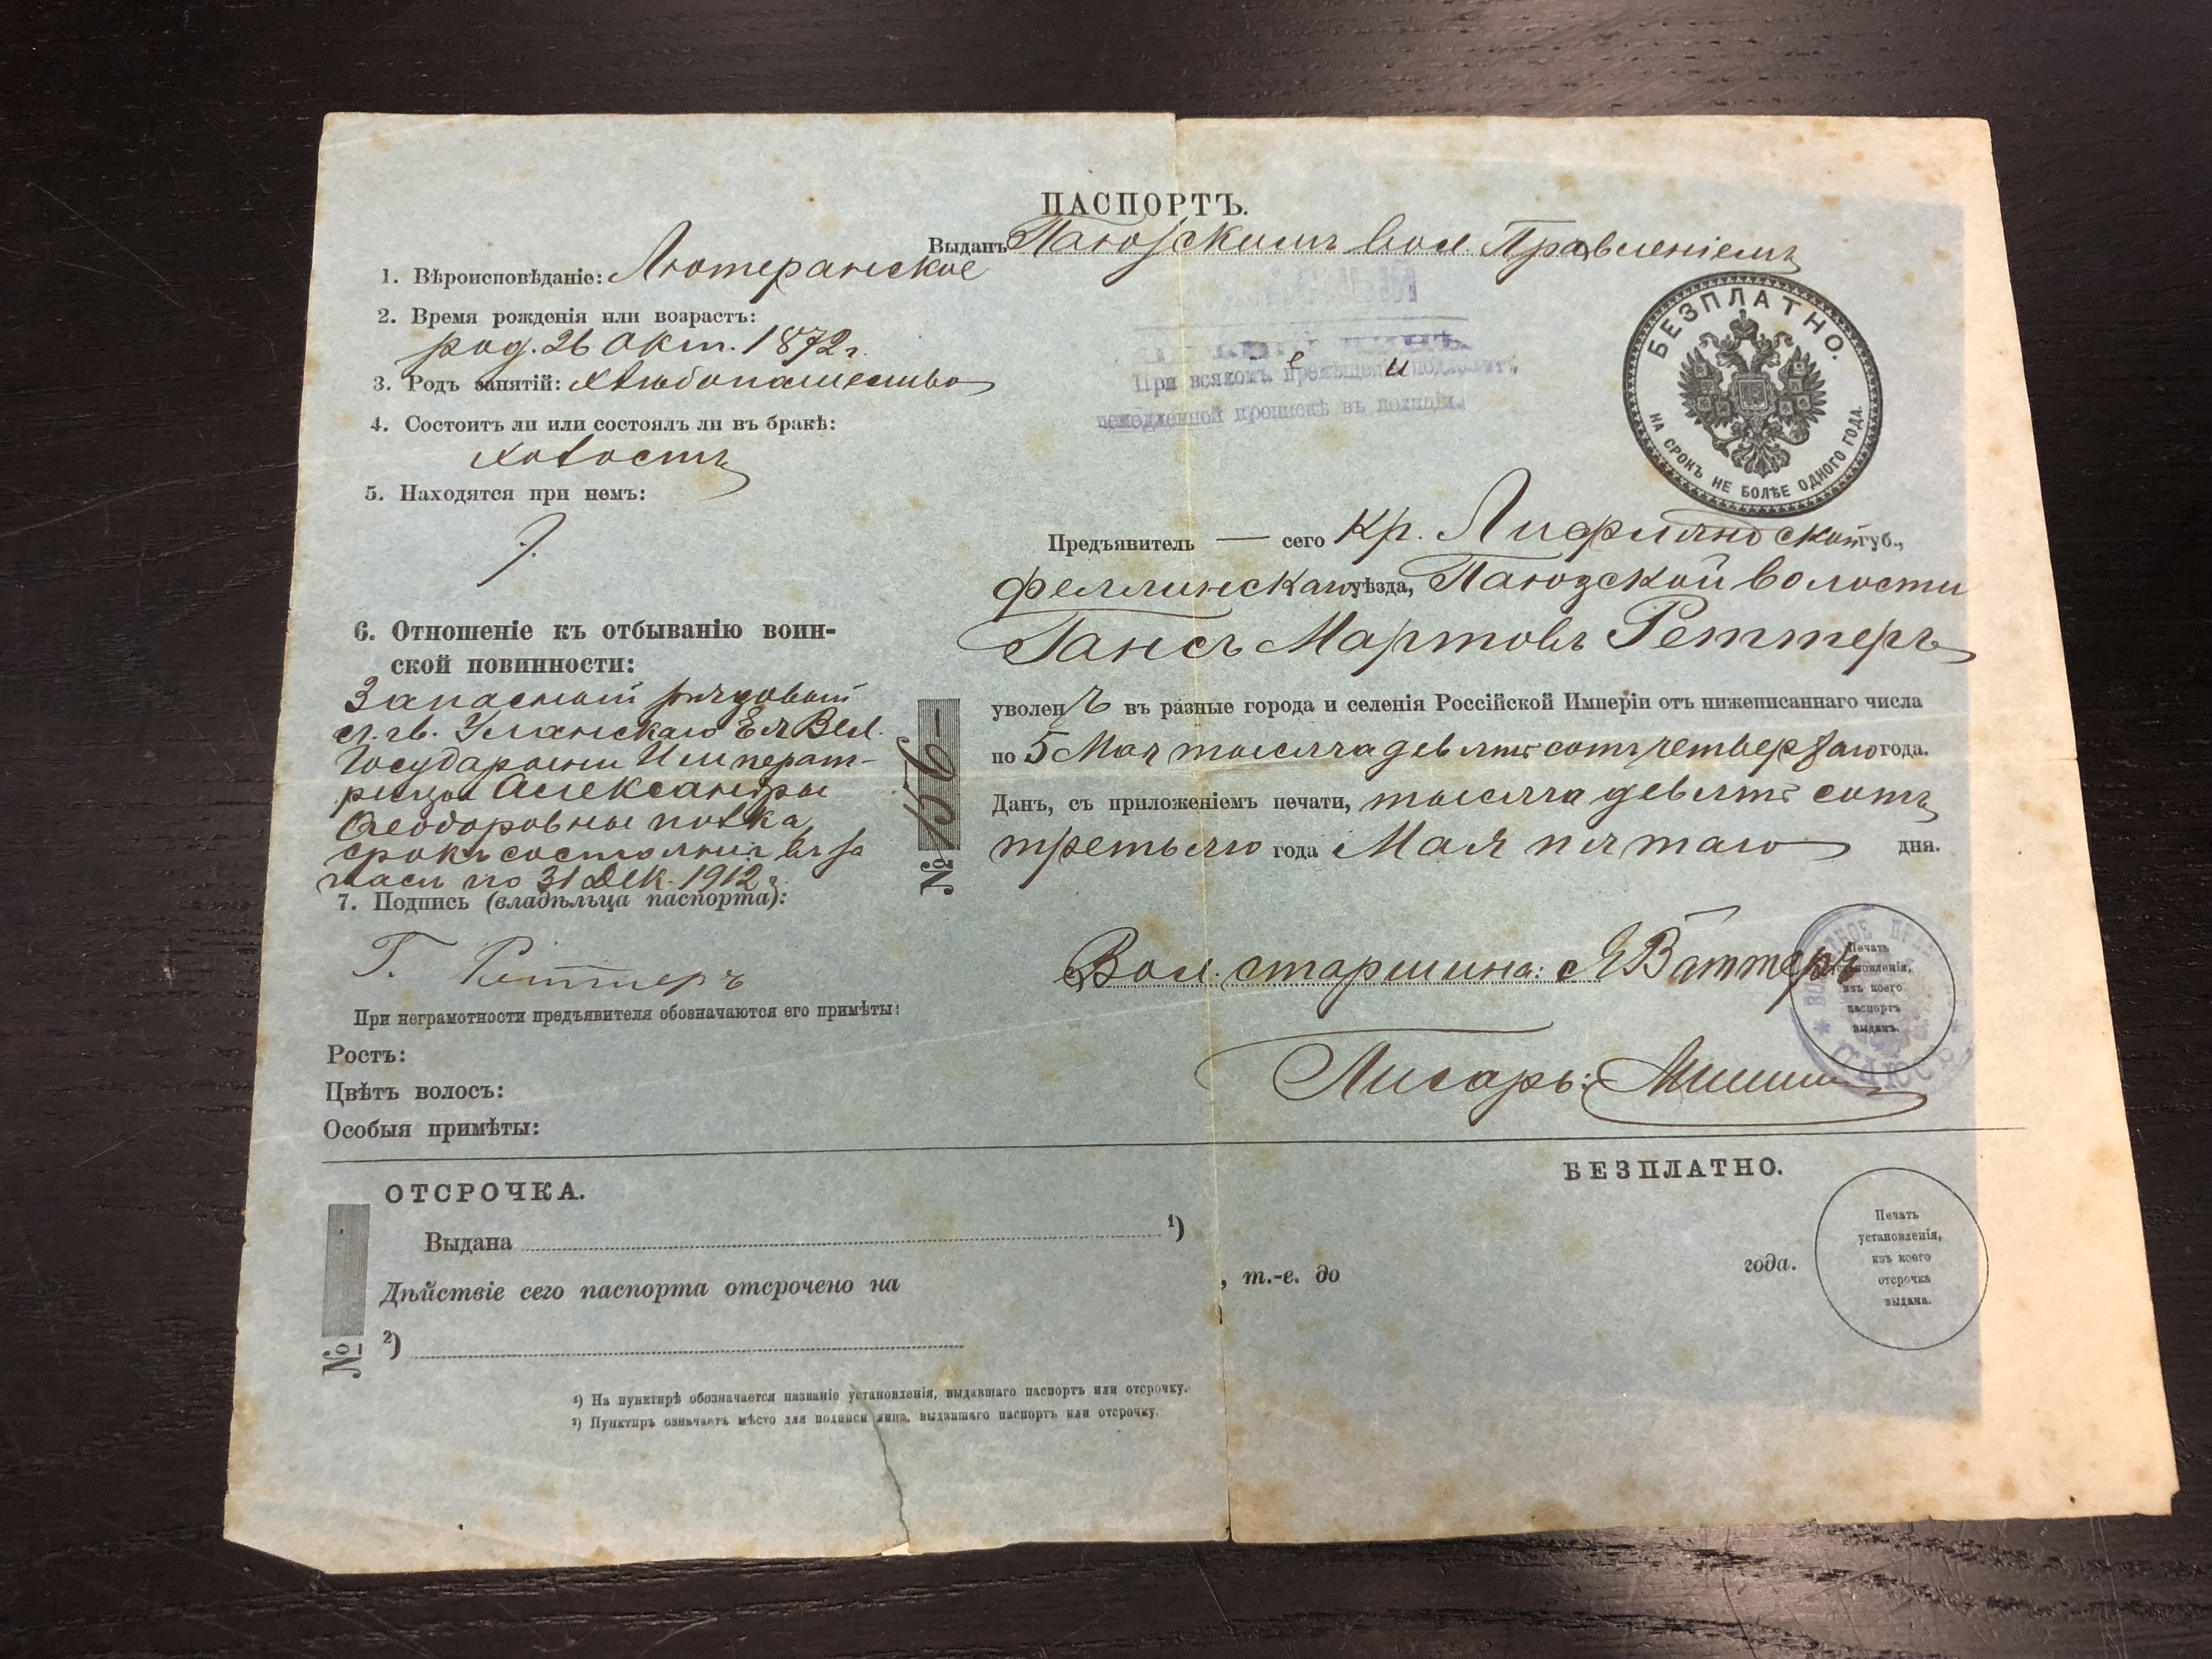 ПАСПОРТЪ.
Выданъ Паюзскимъ вол. Правленіемъ
1. Вѣроисповѣданіе: Лютеранское
2. Время рожденія или возрастъ:
род. 26 Окт. 1872 г.
3. Родъ занятій: хлѣбопашество
4. Состоитъ ли или состоялъ ли въ бракѣ:
холостъ
5. Находятся при немъ:
6. Отношеніе къ отбыванію воин-
ской повинности:
Запасный рядовой
л. гв. Уланскаго Ея Вел.
Государыни Императ-
рицы Александры
Ѳеодоровны полка,
срокъ состоянія въ за
пасѣ по 31 Дек. 1912 г.
7. Подпись (владѣльца паспорта):
Г. Реттеръ
При неграмотности предъявителя обозначаются его примѣты:
Ростъ:
Цвѣтъ волосъ:
Особыя примѣты:
При всякомъ
немедленной пропискѣ въ полиціи.
БЕЗПЛАТНО.
НА СРОКЪ НЕ БОЛѢЕ ОДНОГО ГОДА.
Предъявитель — сего кр. Лифляндской губ.,
Феллинскаго уѣзда, Паюзской волости
Гансъ Мартовъ Реттеръ
уволенъ въ разные города и селенія Россійской Имперіи отъ нижеписаннаго числа
по 5 Мая тысяча девятьсотъ четвертаго года.
Данъ, съ приложеніемъ печати, тысяча девятьсотъ
третьяго года Мая пятаго дня.
№ 156 —
Вол. старшина: Я Ваттеръ
Печать
установленія,
изъ коего
паспортъ
выданъ.
Писарь:
БЕЗПЛАТНО.
ОТСРОЧКА.
Выдана 1)
Дѣйствіе сего паспорта отсрочено на , т.-е. до года.
2)
№
Печать
установленія,
изъ коего
отсрочка
выдана.
1) На пунктирѣ обозначается названіе установленія, выдавшаго паспортъ или отсрочку.
2) Пунктиръ означаетъ мѣсто для подписи лица, выдавшаго паспортъ или отсрочку.